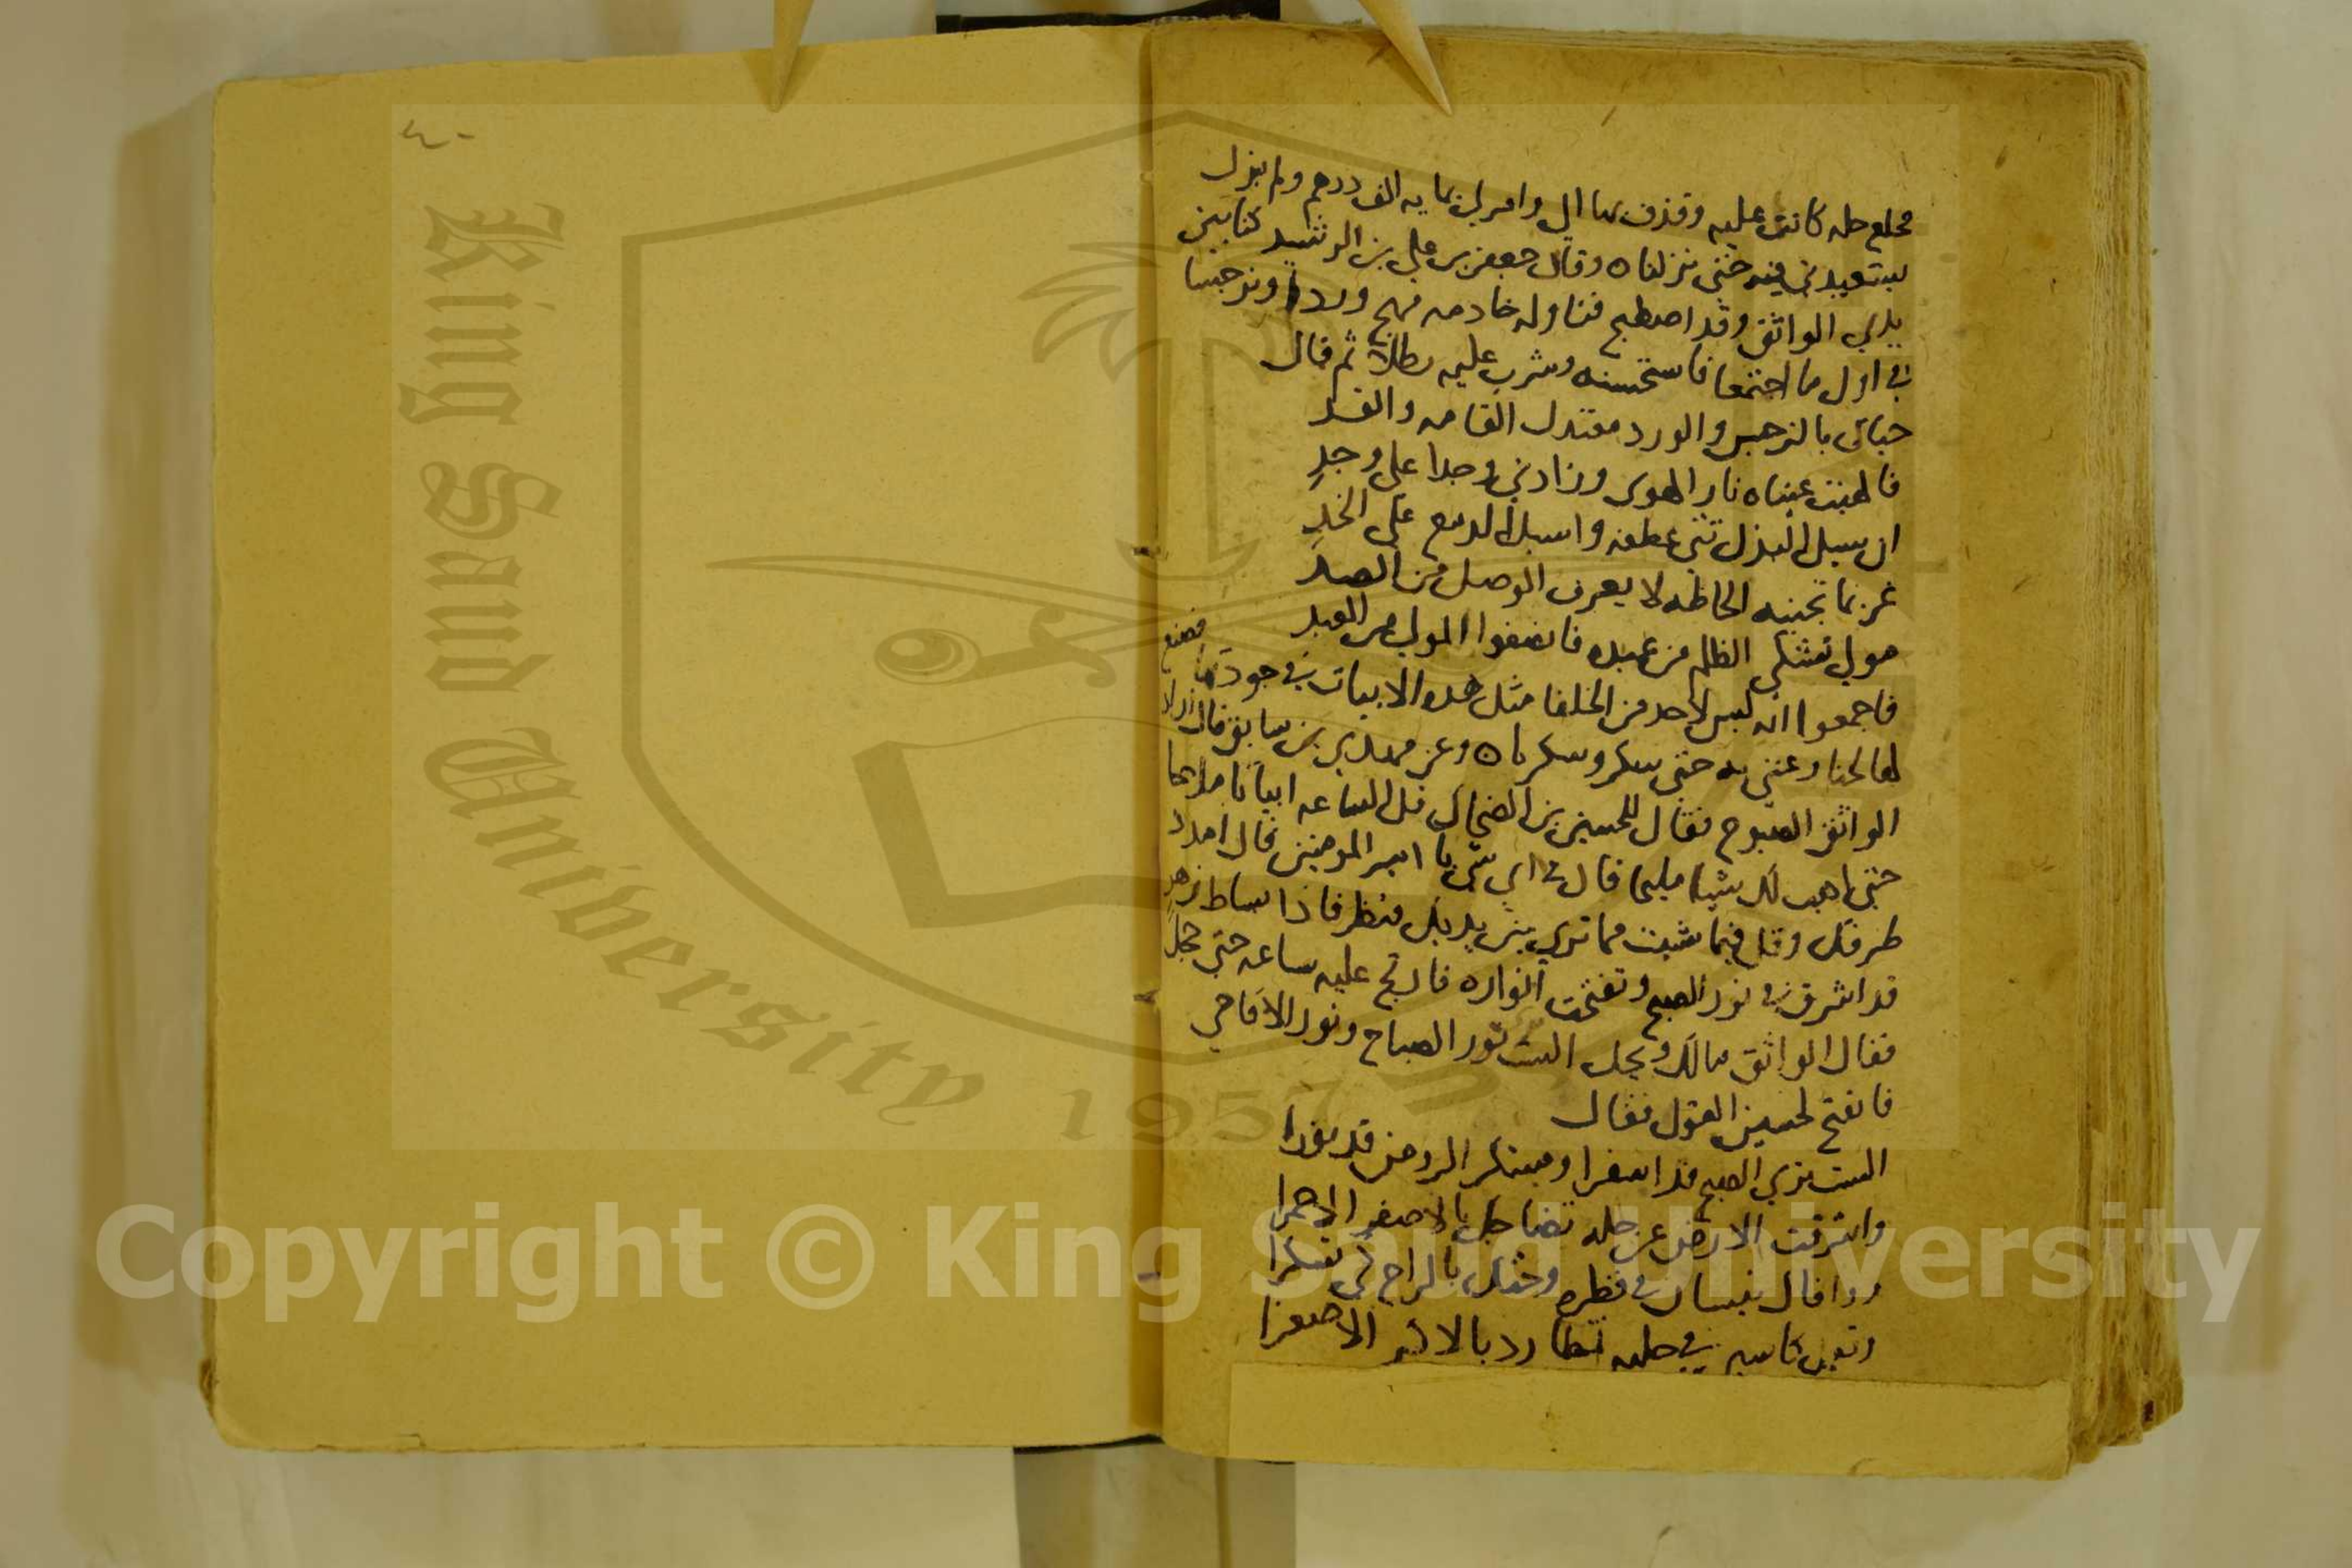 فخلع حله كانت عليه وقذف بها الي وامر لي بمايه الف درهم ولم يزل
يستعيدني فيه حتي نزلنا ه وقال جعفر بن علي بن الرشيد كنا بين
يدي الواثق وقد اصطبح فناوله خادمه مهج وردا ونرجسا
في اول ما اجتمعا فاستحسنه وشرب عليه رطلا ثم قال
حياتي بالنرجس والورد معتدل القامه والقد
فالهبت عيناه نار الهوى وزادني وجدا على وجدِ
ان سيل البذل ثنى عطفه واسبل الدمع على الخدِ
غر بما تجنيه الحاظه لا يعرف الوصل من الصد
مولى تشكى الظلم من عبده فانصفوا المولى من العبد
فاجمعوا انه ليس لاحد من الخلفا مثل هذه الابيات في جودتها فصنع
لها لحنا وغني به حتى سكر وسكرنا ه وعن محمد بن سابق قال اراد
الواثق الصبوح فقال للحسين بن الضحاك قل الساعه ابياتا ملاحا
حتى اهب لك شيا مليحا قال في اي شي يا امير المومنين قال امدد
طرفك وقل فيما شيت مما تري بين يديك فنظر فاذا بساط زهر
قد اشرق في نور الصبح وتفتحت انواره فارتج عليه ساعه حتى خجل
فقال الواثق مالك ويحك الست نور الصباح ونور الاقاحي
فانفتح لحسين القول فقال
الست تري الصبح قد اسفرا ومبتكر الروض قد نورا
واشرقت الارض عن حله تضاحك بالاصفر الاحمرا
ووافاك نيسان في قطره وحثك بالراح كي تسكرا
وتعمل كاسين في حلبه تطارد بالاصغر
King Saud University 1957
Copyright © King Saud University